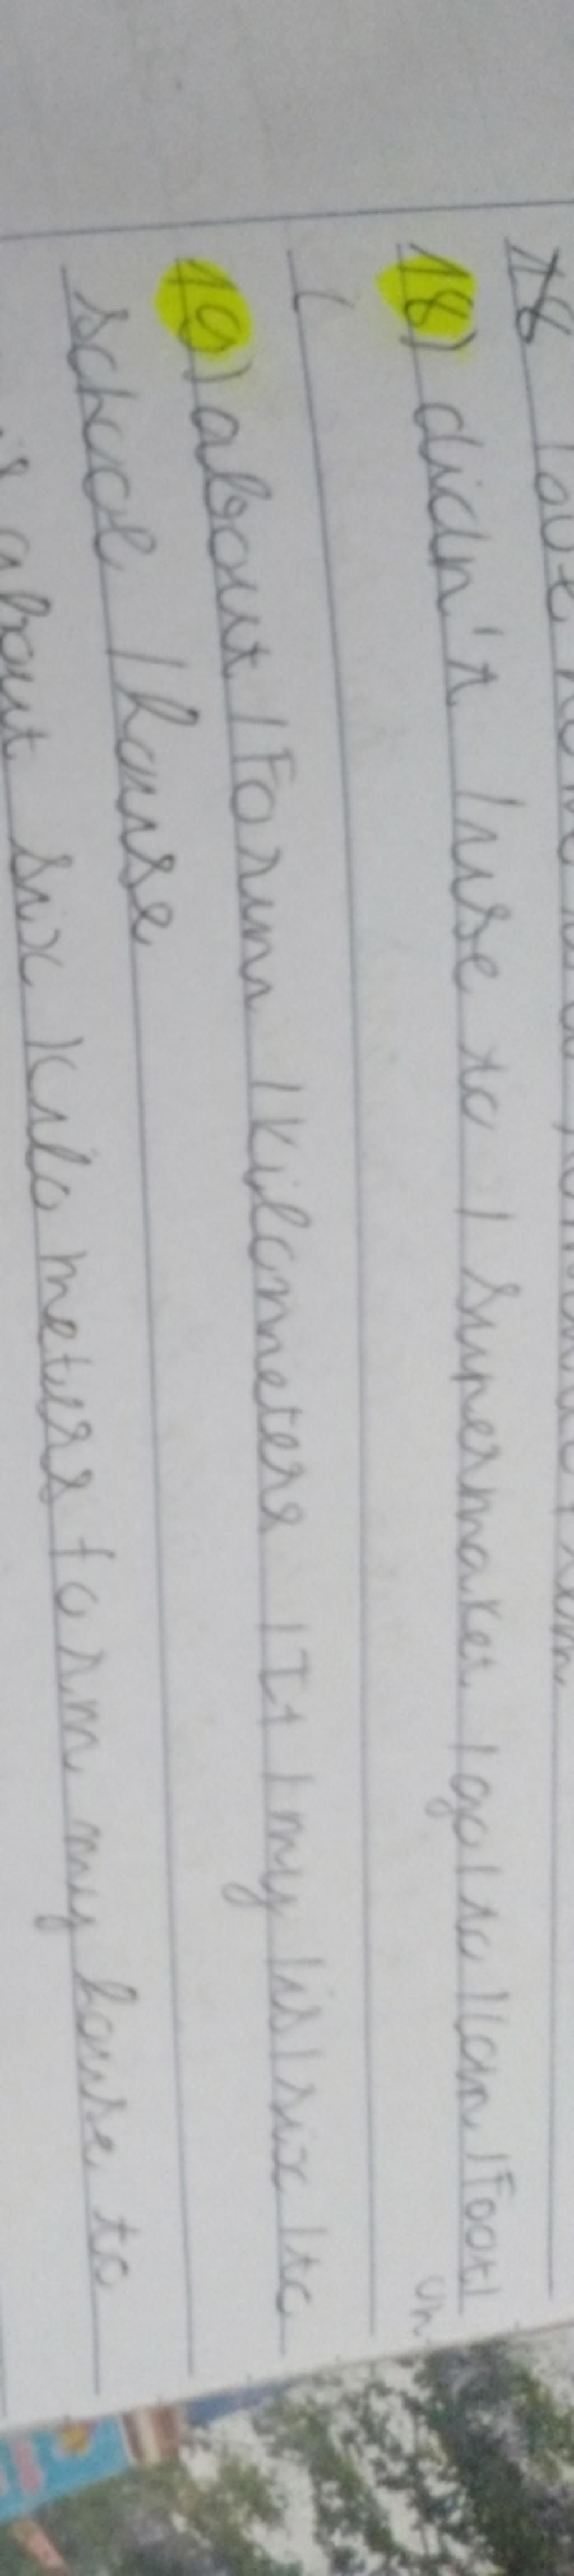 18
18) didn't / use to / supermaket / go / to / I / on / Foot /
(
19) about / Form / kilometers / It / my / is / six / to
school / house
about six Kilo meters form my house to